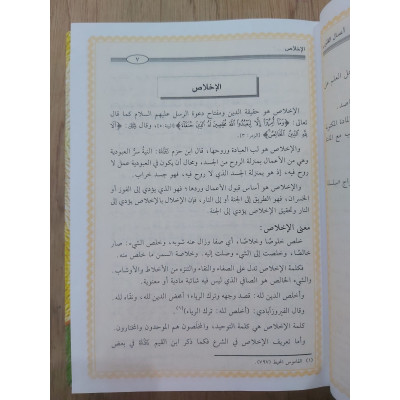 الإخلاص
٧
الإخلاص
الإخلاص هو حقيقة الدين ومفتاح دعوة الرسل عليهم السلام كما قال
تعالى: ﴿وَمَا أُمِرُوا إِلَّا لِيَعْبُدُوا اللَّهَ مُخْلِصِينَ لَهُ الدِّينَ حُنَفَاءَ﴾ وقال ﷻ: ﴿أَلَا
لِلَّهِ الدِّينُ الْخَالِصُ﴾ [الزمر: ٣].
والإخلاص هو لب العبادة وروحها، قال ابن حزم: النية سر العبودية
وهي من الأعمال بمنزلة الروح من الجسد، ومحال أن يكون في العبودية عمل لا
روح فيه، إذ هو بمنزلة الجسد الذي لا روح فيه، فهو جسد خراب.
والإخلاص هو أساس قبول الأعمال وردها فهو الذي يؤدي إلى الفوز أو
الخسران، فهو الطريق إلى الجنة أو إلى النار، فإن الإخلال بالإخلاص يؤدي إلى
النار وتحقيق الإخلاص يؤدي إلى الجنة.
معنى الإخلاص:
خلص خلوصًا وخلاصًا، أي صفا وزال عنه شوبه، وخلص الشيء: صار
خالصًا، وخلصت إلى الشيء: وصلت إليه، وخلاصة السمن ما خلص منه.
فكلمة الإخلاص تدل على الصفاء والنقاء والتنزه من الأخلاط والأوشاب.
والشيء الخالص هو الصافي الذي ليس فيه شائبة مادية أو معنوية.
وأخلص الدين لله: قصد وجهه وترك الرياء، أمحض الدين لله، ونقاه لله.
وقال الفيروزآبادي: أخلص لله: ترك الرياء(١).
كلمة الإخلاص هي كلمة التوحيد، والمخلصون هم الموحدون والمختارون.
وأما تعريف الإخلاص في الشرع فكما ذكر ابن القيم في بعض
(١) القاموس المحيط (٧٩٧)